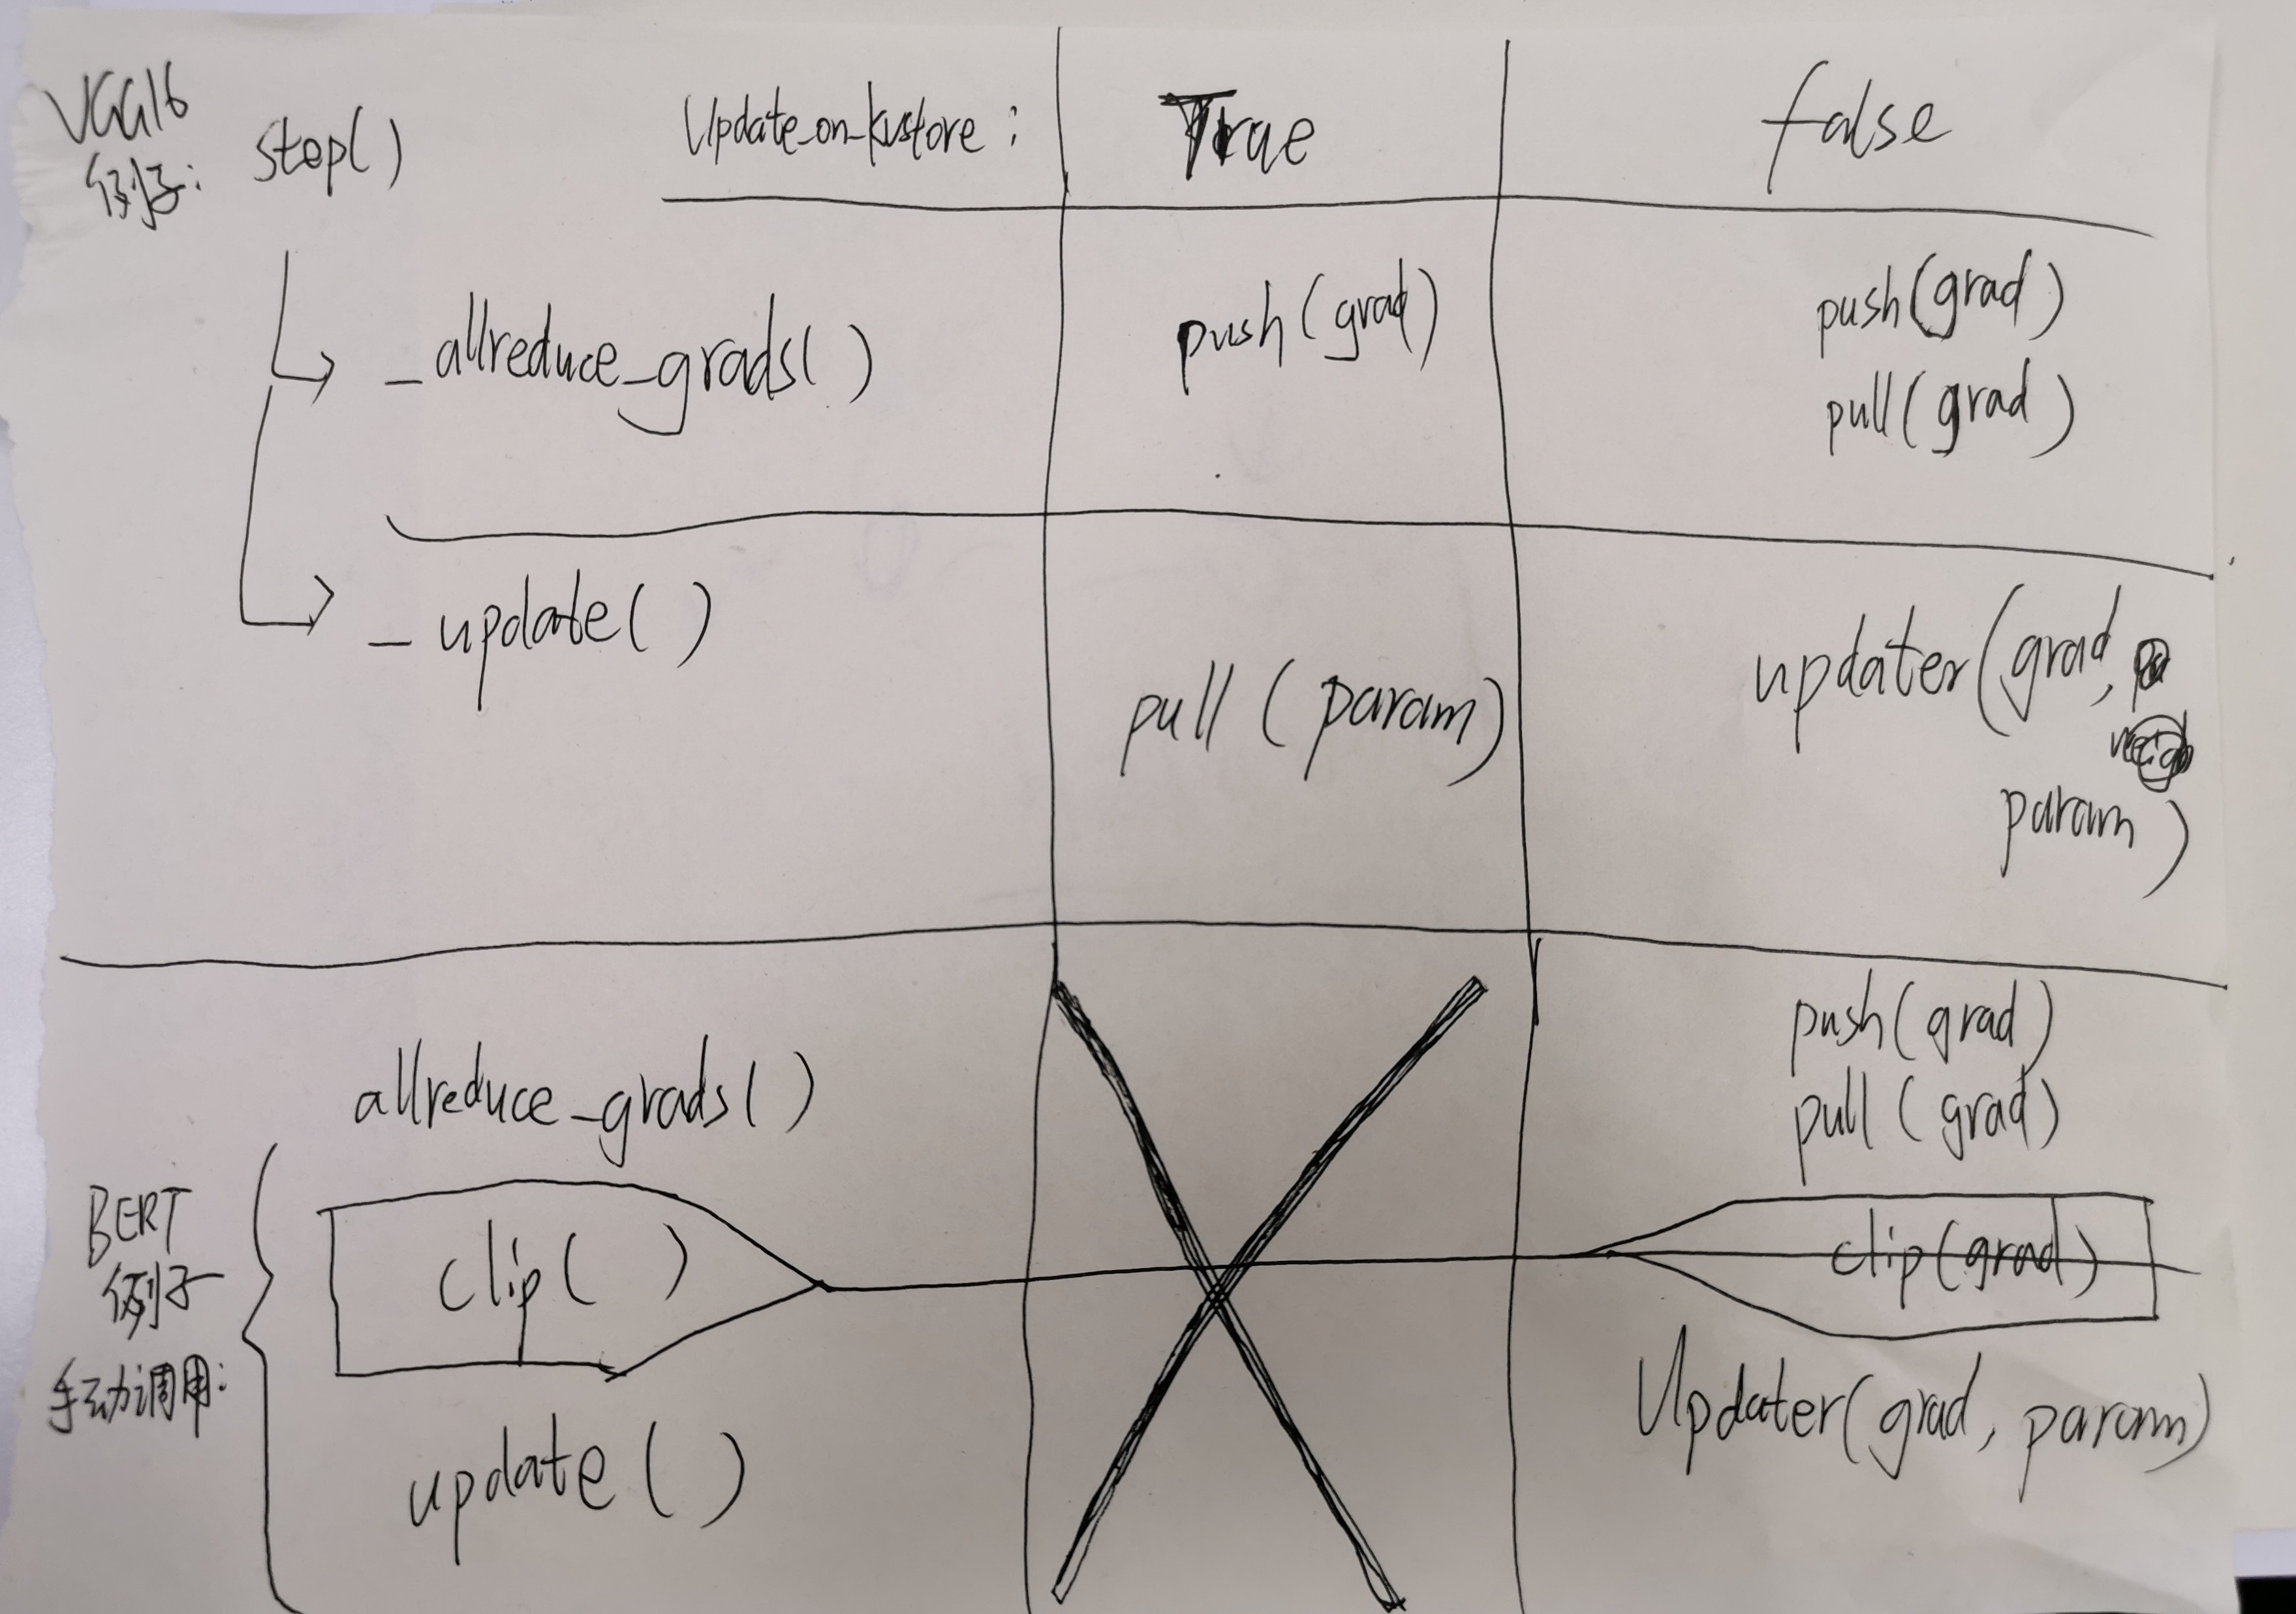 VGG16
例子: step()
Update_on_kvstore: True false
_allreduce_grads() push(grad) push(grad)
pull(grad)
_update() pull(param) updater(grad,
param)
allreduce_grads() push(grad)
pull(grad)
BERT
例子
手动调用:
clip( ) clip(grad)
update() Updater(grad, param)